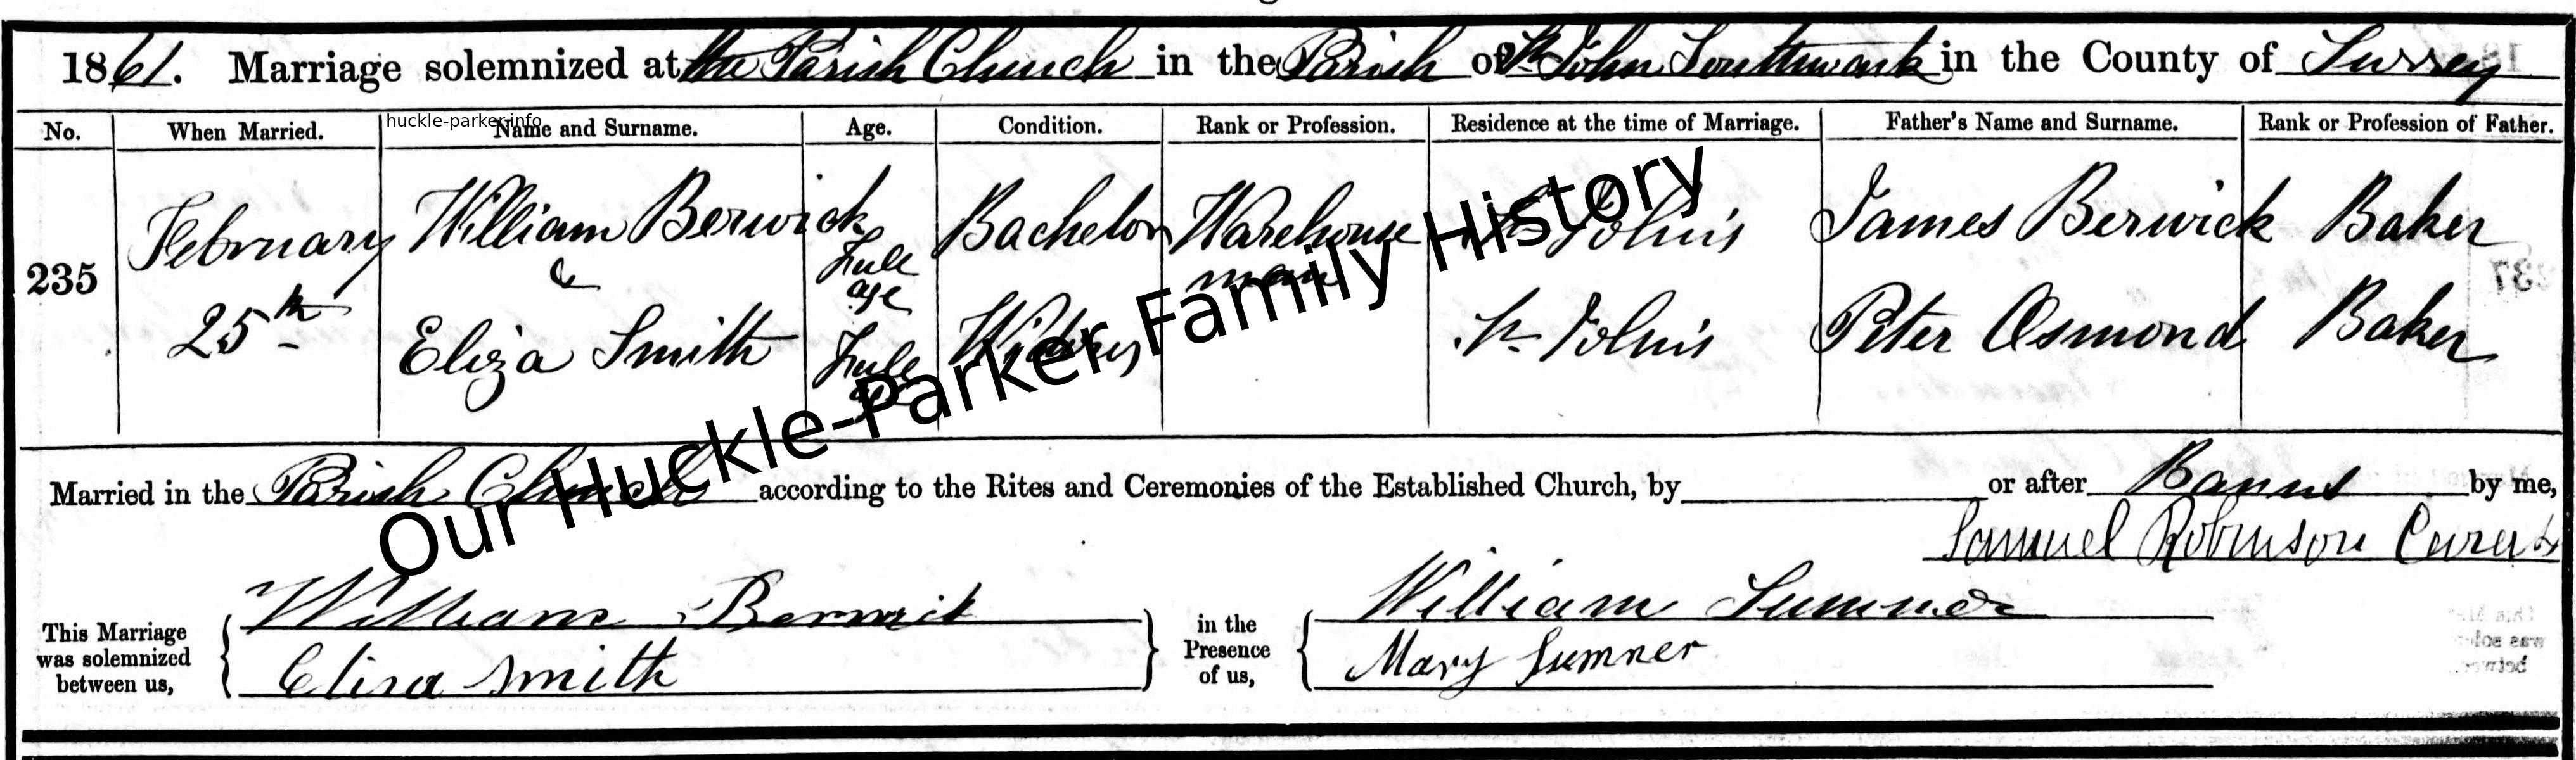 1861. Marriage solemnized at the Parish Church in the Parish of St. John Southwark in the County of Surrey
huckle-parker.info
No. When Married. Name and Surname. Age. Condition. Rank or Profession. Residence at the time of Marriage. Father's Name and Surname. Rank or Profession of Father.
235 February 25th William Berwick Full age Bachelor Warehouse man St Johns James Berwick Baker
&
Eliza Smith Full age Widow St Johns Peter Osmond Baker
Our Huckle-Parker Family History
Married in the Parish Church according to the Rites and Ceremonies of the Established Church, by or after Banns by me,
Samuel Robinson Curate
This Marriage was solemnized between us, William Berwick in the Presence of us, William Sumner
Eliza Smith Mary Sumner